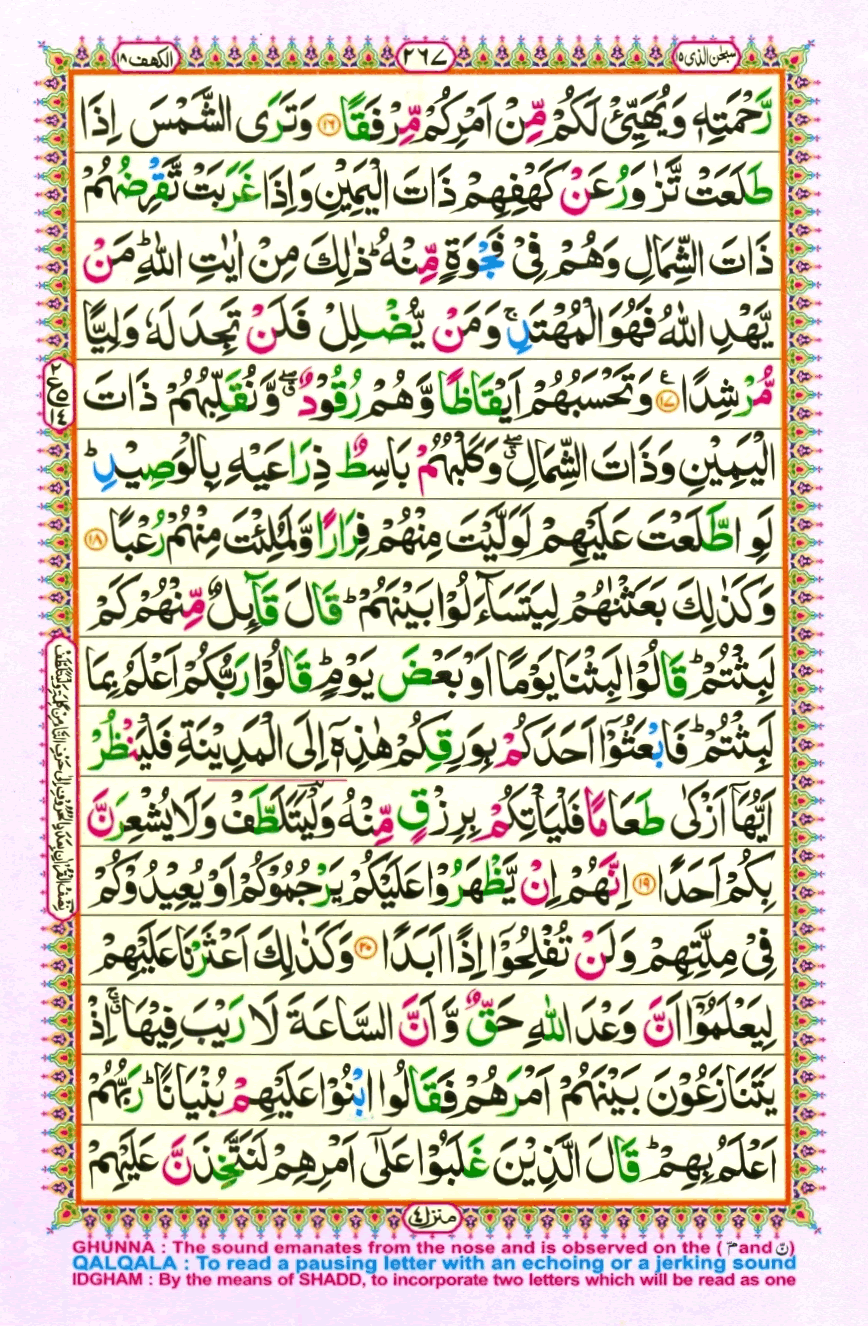 سبحن الذی ۱۵
۲۶۷
الکهف ۱۸
رَّحْمَتِهٖ وَیُهَیِّئْ لَكُمْ مِّنْ اَمْرِكُمْ مِّرْفَقًا ﴿۱۶﴾ وَتَرَی الشَّمْسَ اِذَا
طَلَعَتْ تَّزٰوَرُ عَنْ كَهْفِهِمْ ذَاتَ الْیَمِیْنِ وَاِذَا غَرَبَتْ تَّقْرِضُهُمْ
ذَاتَ الشِّمَالِ وَهُمْ فِیْ فَجْوَةٍ مِّنْهُ ؕ ذٰلِكَ مِنْ اٰیٰتِ اللّٰهِ ؕ مَنْ
یَّهْدِ اللّٰهُ فَهُوَ الْمُهْتَدِ ۚ وَمَنْ یُّضْلِلْ فَلَنْ تَجِدَ لَهٗ وَلِیًّا
مُّرْشِدًا ﴿۱۷﴾ وَتَحْسَبُهُمْ اَیْقَاظًا وَّهُمْ رُقُوْدٌ ۖۗ وَّنُقَلِّبُهُمْ ذَاتَ
الْیَمِیْنِ وَذَاتَ الشِّمَالِ ۖۗ وَكَلْبُهُمْ بَاسِطٌ ذِرَاعَیْهِ بِالْوَصِیْدِ ؕ
لَوِ اطَّلَعْتَ عَلَیْهِمْ لَوَلَّیْتَ مِنْهُمْ فِرَارًا وَّلَمُلِئْتَ مِنْهُمْ رُعْبًا ﴿۱۸﴾
وَكَذٰلِكَ بَعَثْنٰهُمْ لِیَتَسَآءَلُوْا بَیْنَهُمْ ؕ قَالَ قَآىِٕلٌ مِّنْهُمْ كَمْ
لَبِثْتُمْ ؕ قَالُوْا لَبِثْنَا یَوْمًا اَوْ بَعْضَ یَوْمٍ ؕ قَالُوْا رَبُّكُمْ اَعْلَمُ بِمَا
لَبِثْتُمْ ؕ فَابْعَثُوْۤا اَحَدَكُمْ بِوَرِقِكُمْ هٰذِهٖۤ اِلَی الْمَدِیْنَةِ فَلْیَنْظُرْ
اَیُّهَاۤ اَزْكٰی طَعَامًا فَلْیَاْتِكُمْ بِرِزْقٍ مِّنْهُ وَلْیَتَلَطَّفْ وَلَا یُشْعِرَنَّ
بِكُمْ اَحَدًا ﴿۱۹﴾ اِنَّهُمْ اِنْ یَّظْهَرُوْا عَلَیْكُمْ یَرْجُمُوْكُمْ اَوْ یُعِیْدُوْكُمْ
فِیْ مِلَّتِهِمْ وَلَنْ تُفْلِحُوْۤا اِذًا اَبَدًا ﴿۲۰﴾ وَكَذٰلِكَ اَعْثَرْنَا عَلَیْهِمْ
لِیَعْلَمُوْۤا اَنَّ وَعْدَ اللّٰهِ حَقٌّ وَّاَنَّ السَّاعَةَ لَا رَیْبَ فِیْهَا ۗۚ اِذْ
یَتَنَازَعُوْنَ بَیْنَهُمْ اَمْرَهُمْ فَقَالُوا ابْنُوْا عَلَیْهِمْ بُنْیَانًا ؕ رَبُّهُمْ
اَعْلَمُ بِهِمْ ؕ قَالَ الَّذِیْنَ غَلَبُوْا عَلٰۤی اَمْرِهِمْ لَنَتَّخِذَنَّ عَلَیْهِمْ
منزل ۴
GHUNNA : The sound emanates from the nose and is observed on the ( مّ and نّ )
QALQALA : To read a pausing letter with an echoing or a jerking sound
IDGHAM : By the means of SHADD, to incorporate two letters which will be read as one